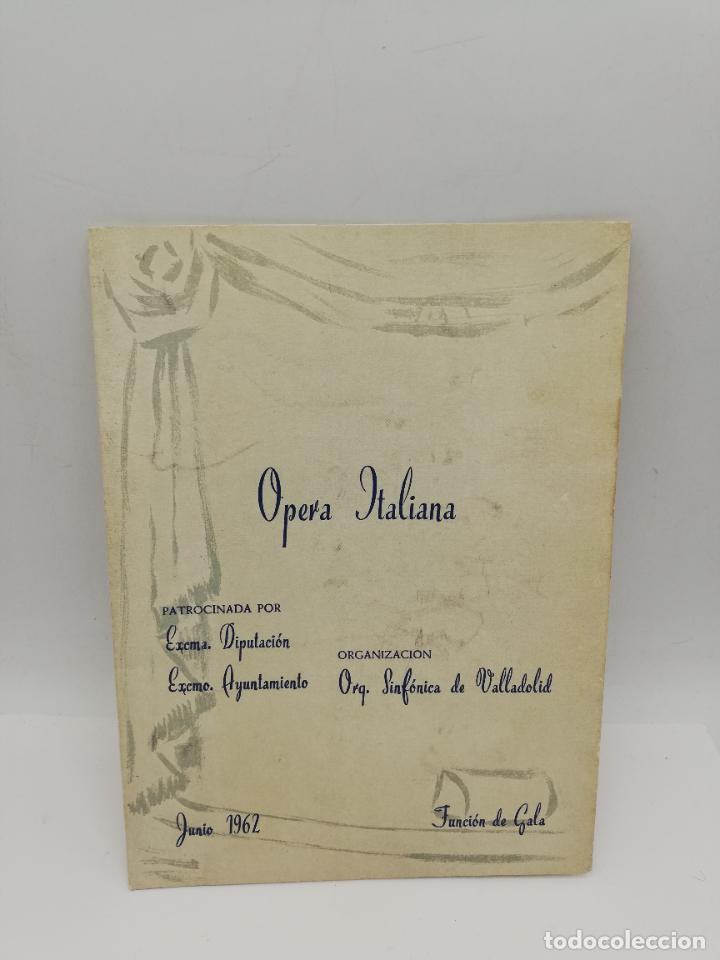 Opera Italiana
PATROCINADA POR
Excma. Diputación
Excmo. Ayuntamiento
ORGANIZACION
Orq. Sinfónica de Valladolid
Junio 1962
Función de Gala
todocoleccion